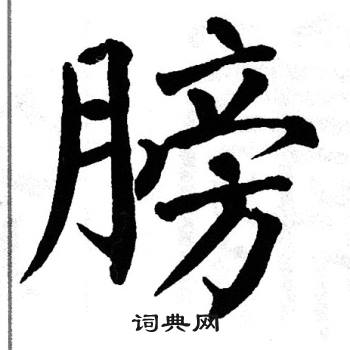 膀
词典网